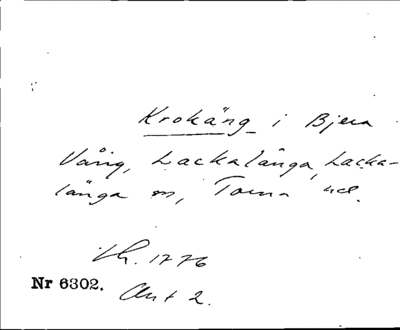 Krokäng i Bjera
Vång, Lackalänga, Lacka-
länga sn, Torna hd.
Lh. 1776
Nr 6302.
Akt 2.